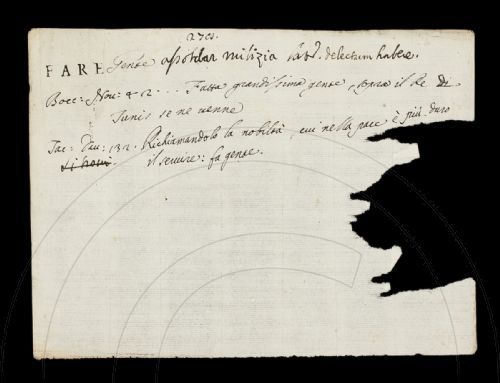 2701.
FARE Gente assoldar milizia lat. delectum habere.
Bocc: Nov: 42 . . . Fatta grandissima gente, sopra il Re di
Tunis se ne venne
Tac: Dav: 132. Richiamandolo la nobiltà, cui nella pace è più duro
il servire: fa gente.